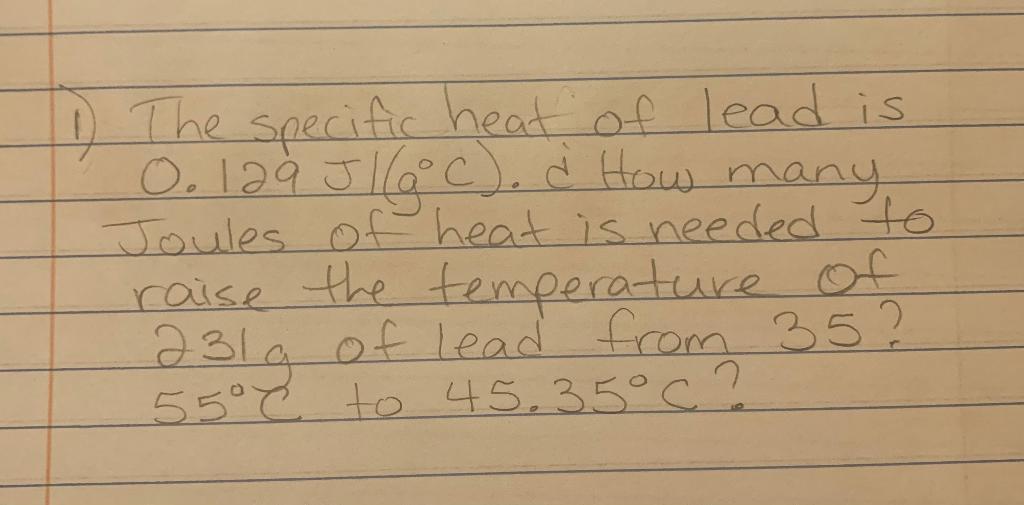 1) The specific heat of lead is
0.129 J/(g°C). ¿ How many
Joules of heat is needed to
raise the temperature of
231g of lead from 35?
55°C to 45.35°C?